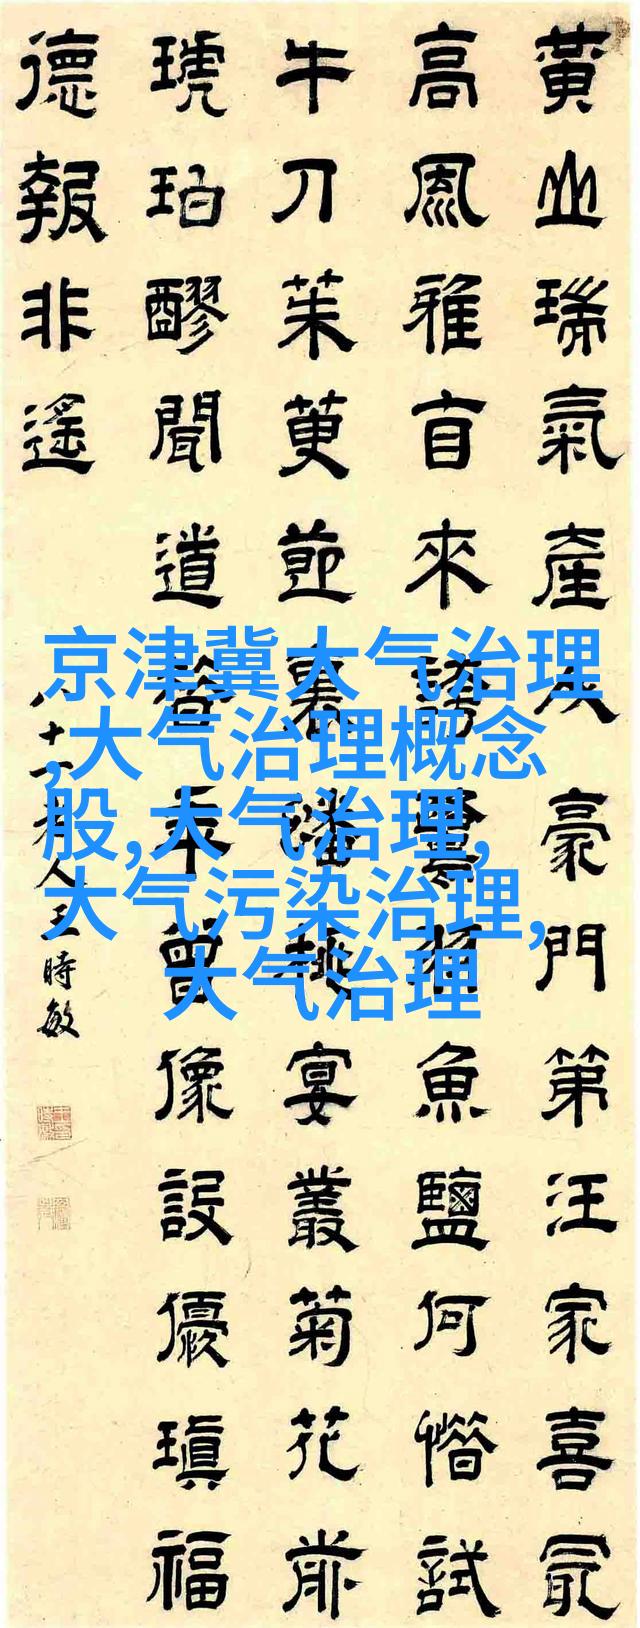 黃山瑞氣產豪門第汪家喜最
高風雅來魚鹽何試
牛刀茱萸節宴叢菊花前
琥珀醪聞道年曾像設優瑱福
德報非遙
八十老人王時敏
京津冀大气治理
,大气治理概念
股,大气治理,
大气污染治理,
大气治理